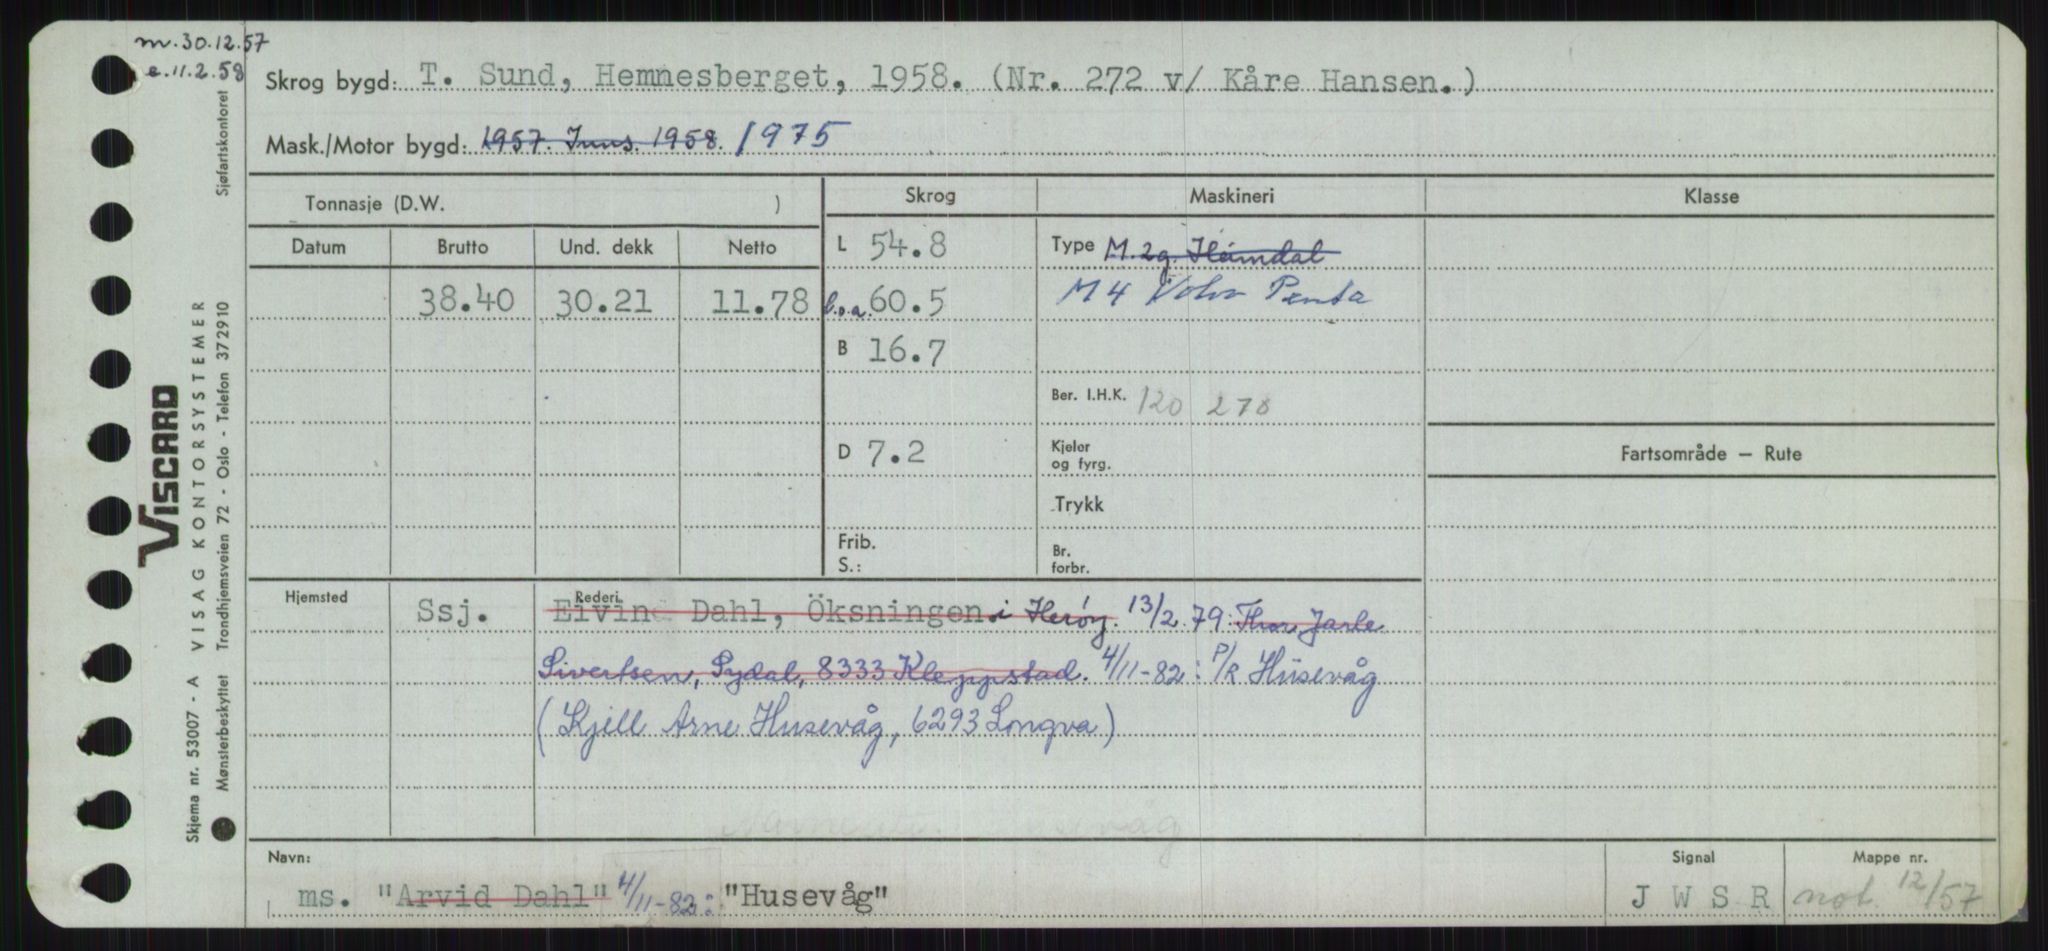 m. 30.12.57
e. 11.2.58
Skrog bygd: T. Sund, Hemnesberget, 1958. (Nr. 272 v/ Kåre Hansen.)
Mask./Motor bygd: 1957. Inns. 1958. 1975
Tonnasje (D.W. )
Skrog
Maskineri
Klasse
Datum Brutto Und. dekk Netto
38.40 30.21 11.78
L 54.8
l.o.a. 60.5
B 16.7
D 7.2
Frib.
S.:
Type M. 2g. Hamdal
M 4 Volvo Penta
Ber. I.H.K. 120 270
Kjeler
og fyrg.
Trykk
Br.
forbr.
Fartsområde — Rute
Hjemsted
Rederi
Ssj. Eivind Dahl, Öksningen i Herøy. 13/2.79: Thor Jarle
Sivertsen, Sydal, 8333 Kleppstad. 4/11-82: P/R Husevåg
(Kjell Arne Husevåg, 6293 Longva)
Navn:
ms. "Arvid Dahl" 4/11-82: "Husevåg"
Signal
J W S R
Mappe nr.
not. 12/57
Sjøfartskontoret
VISCARD
Skjema nr. 53007 - A VISAG KONTORSYSTEMER
Mønsterbeskyttet Trondhjemsveien 72 - Oslo - Telefon 372910